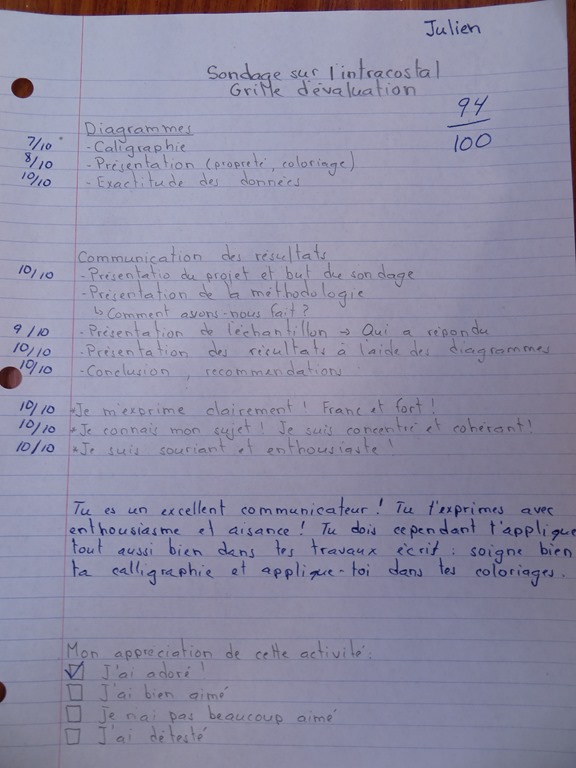 Julien
Sondage sur l'intracostal
Grille d'évaluation
94
100
Diagrammes
7/10 - Caligraphie
8/10 - Présentation (propreté, coloriage)
10/10 - Exactitude des données
Communication des résultats
10/10 - Présentatio du projet et but du sondage
- Présentation de la méthodologie
↳ Comment avons-nous fait?
9/10 - Présentation de l'échantillon → Qui a répondu
10/10 - Présentation des résultats à l'aide des diagrammes
10/10 - Conclusion, recommendations
10/10 * Je m'exprime clairement! Franc et fort!
10/10 * Je connais mon sujet! Je suis concentré et cohérant!
10/10 * Je suis souriant et enthousiaste!
Tu es un excellent communicateur! Tu t'exprimes avec
enthousiasme et aisance! Tu dois cependant t'applique
tout aussi bien dans tes travaux écrit: soigne bien
ta calligraphie et applique-toi dans tes coloriages.
Mon appréciation de cette activité:
☑ J'ai adoré!
☐ J'ai bien aimé
☐ Je n'ai pas beaucoup aimé
☐ J'ai détesté